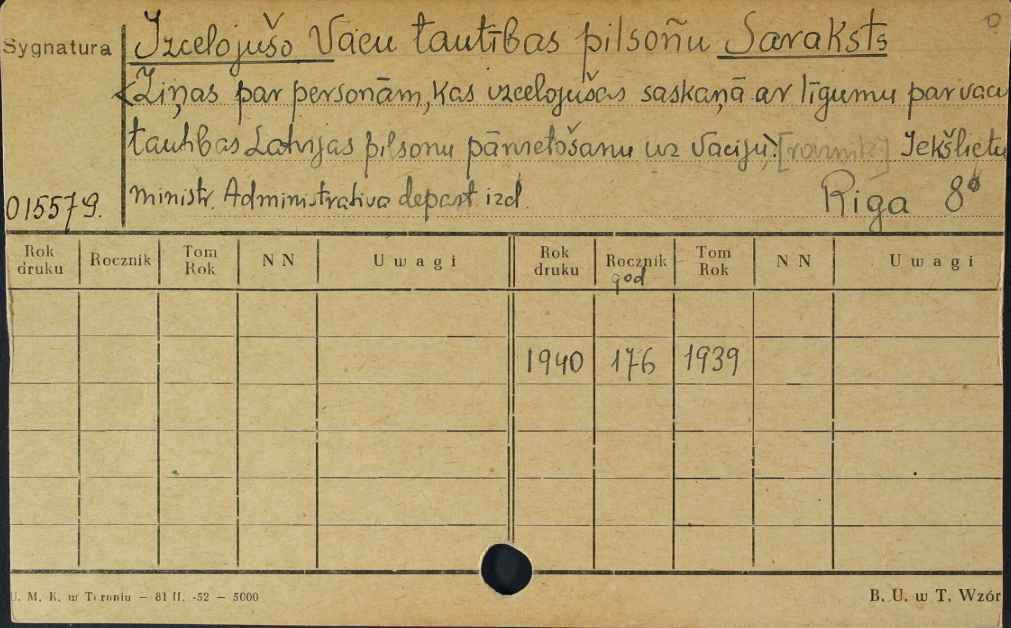 Sygnatura
Izceļojušo Vācu tautības pilsoñu Saraksts
<Ziņas par personām, kas izceļojušas saskaņā ar līgumu par vācu
tautības Latvijas pilsonu pārvietošanu uz Vāciju>. Iekšlietu
ministr. Administrativa depart. izd.
Riga 8°
015579.
Rok druku Rocznik Tom Rok N N Uwagi Rok druku Rocznik Tom Rok N N Uwagi
god
1940 176 1939
U. M. K. w Toruniu — 81 II. -52 — 5000
B. U. w T. Wzór